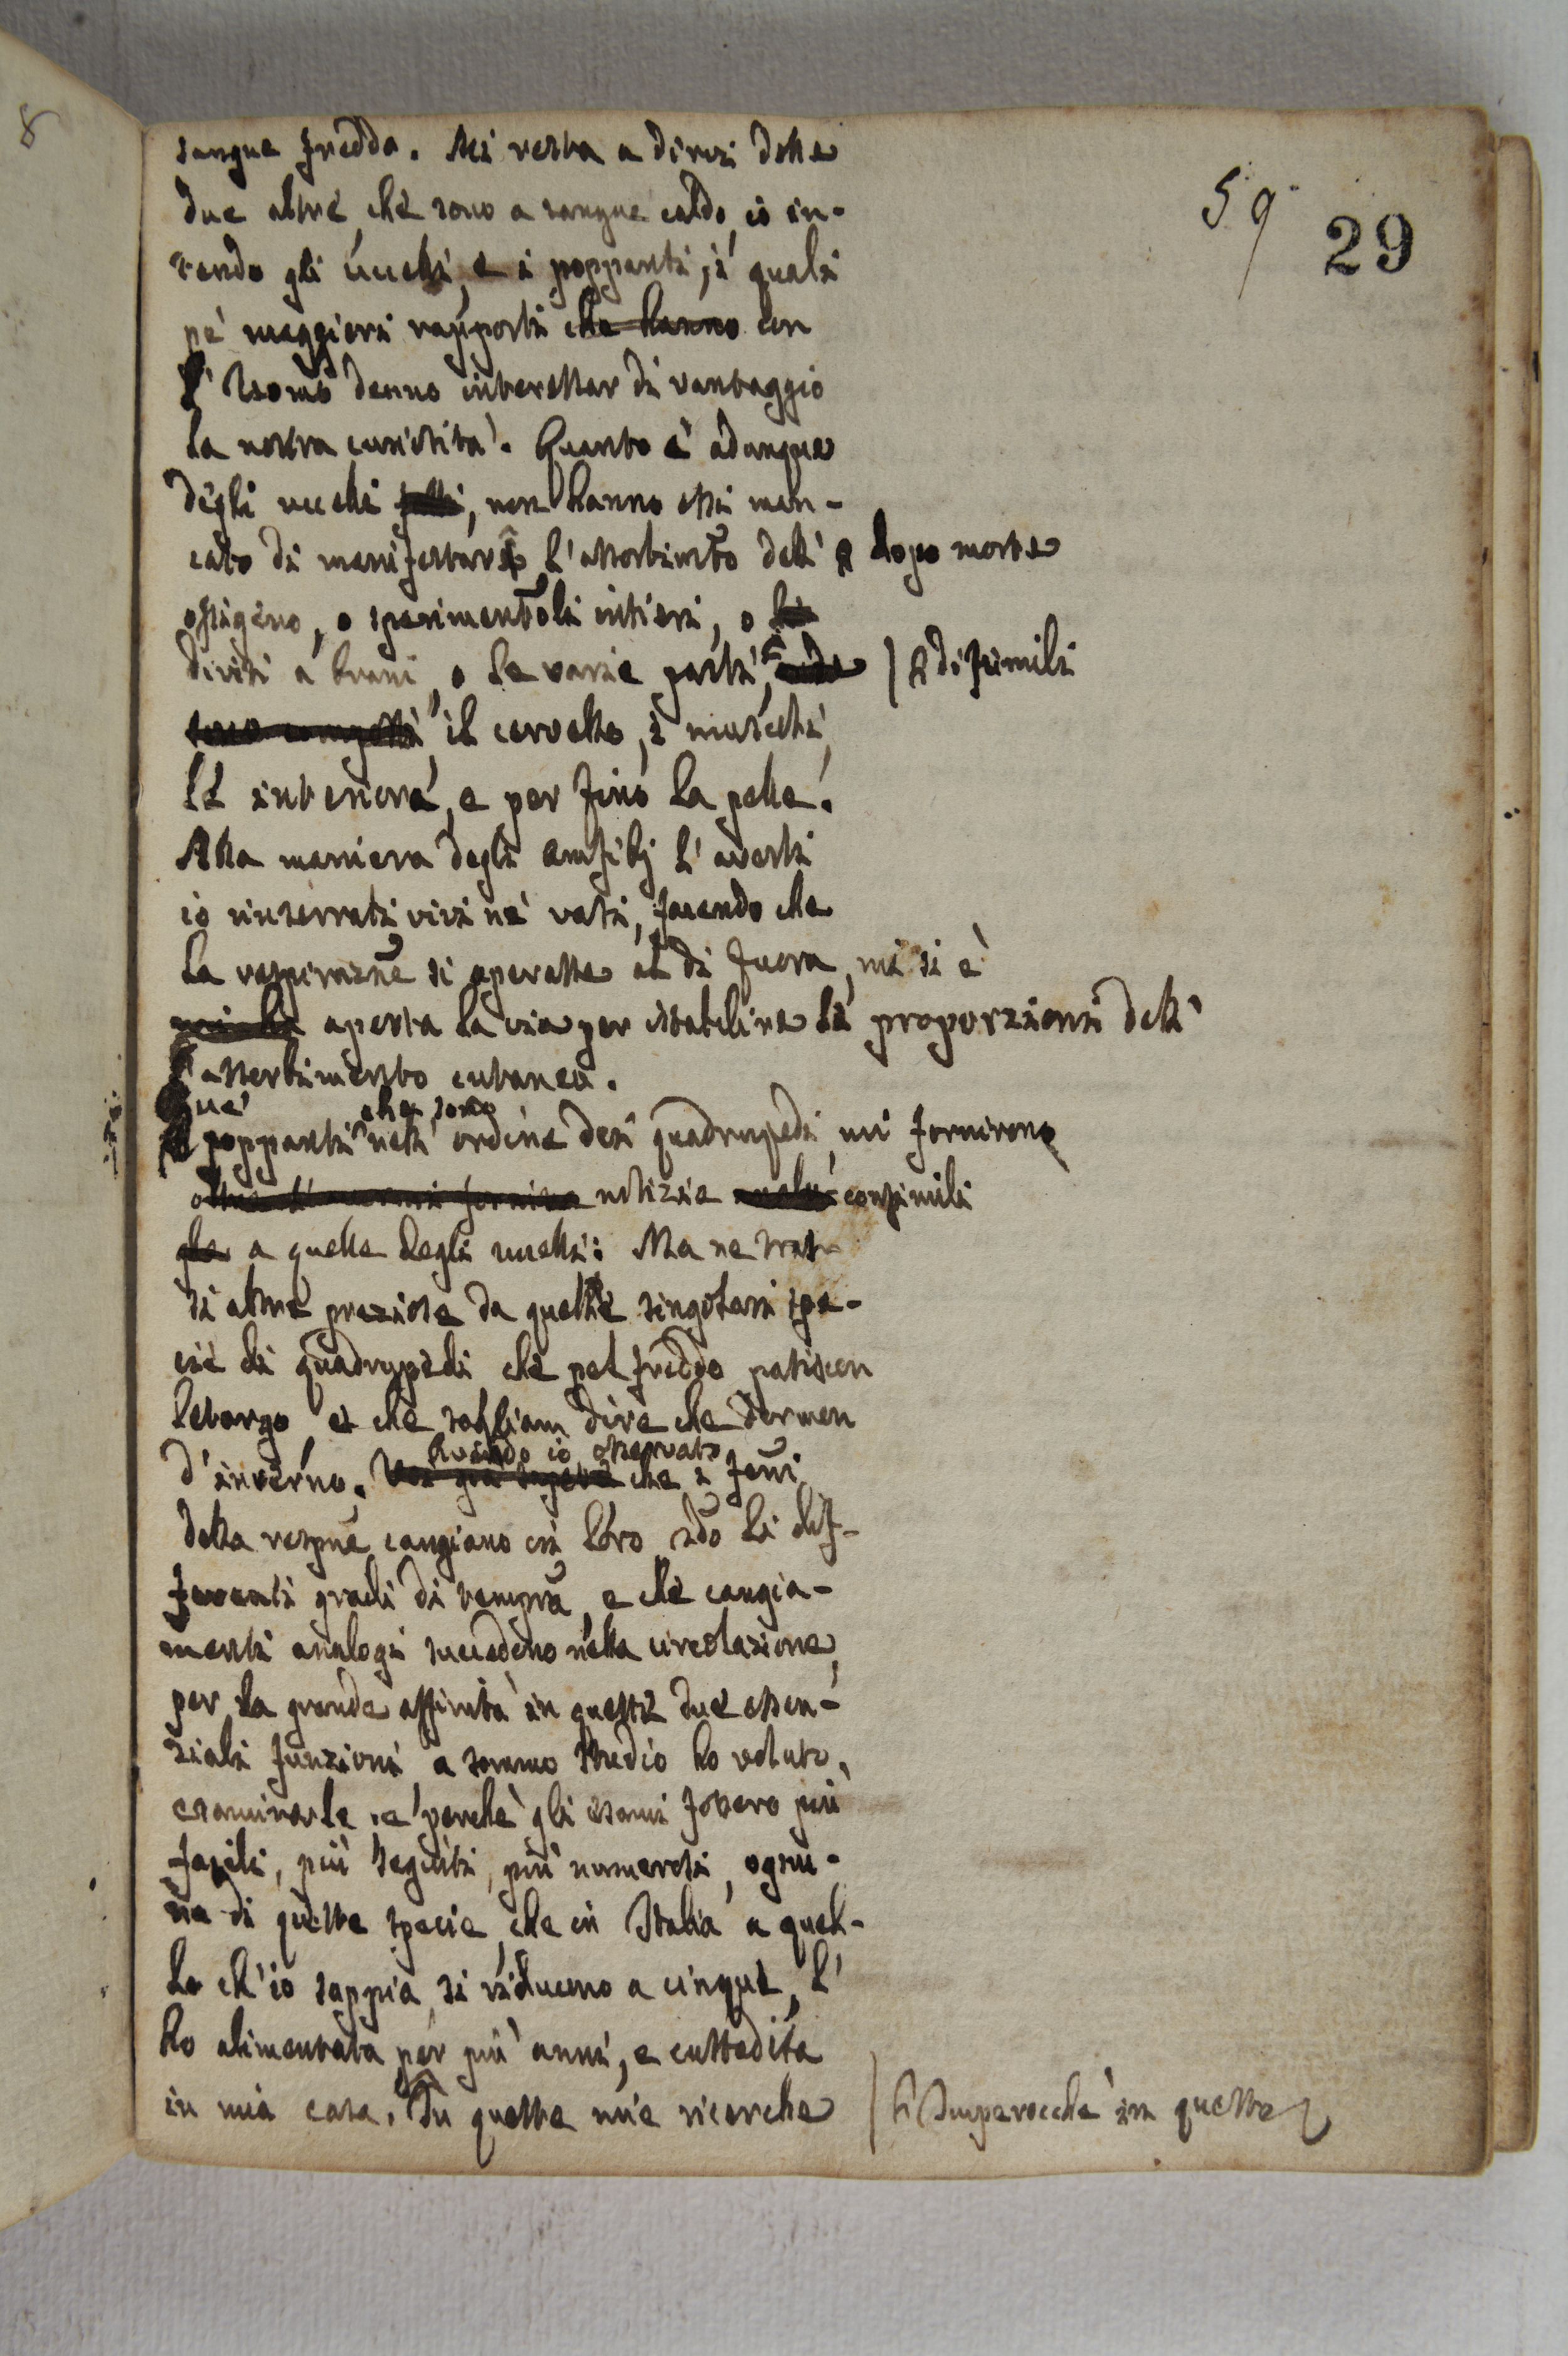 59
29
sangue freddo. Mi resta a dirvi delle
due altre che sono a sangue caldo, io in-
tendo gli uccelli, e i poppanti, i quali
pe' maggiori rapporti che hanno con
l' Uomo denno interessar di vantaggio
la nostra curiosità. Quanto è adunque
degli uccelli, non hanno essi man-
cato di manifestarmi l'assorbimto dell' dopo morte
ossigeno, o sperimentoli intieri, o li
divisi a brani, o le varie parti, | di simili
sono composti il cervello, i muscoli,
le interiora, e per fino la pelle.
Alla maniera degli amfibj l' averli
io rinserrati vivi ne' vasi, facendo che
la respirazne si operasse al di fuora, mi si è
mi ha aperta la via per istabilire le proporzioni dell'
assorbimento cutaneo.
Que' che sono
poppanti nell' ordine dei quadrupedi mi fornirono
notizie consimili
a quelle degli uccelli: Ma ne tras-
si altre preziose da quelle singolari spe-
cie di quadrupedi che pel freddo patiscon
letargo, e che sogliam dire che dormon
Avendo io osservato
d'inverno. Voi già sapete che i feni
della respne cangiano in loro sdo li dif-
ferenti gradi di tempra, e che cangia-
menti analogi succedono nella circolazione,
per la grande affinità in queste due essen-
ziali funzioni a sommo studio ho voluto
esaminarle, e perchè gli esami fossero più
facili, più seguiti, più numerosi, ognu-
na di queste specie, che in Italia a quel-
lo ch'io sappia, si riducono a cinque, l'
ho alimentata per più anni, e custodita
in mia casa. In queste mie ricerche | Imperocchè in queste